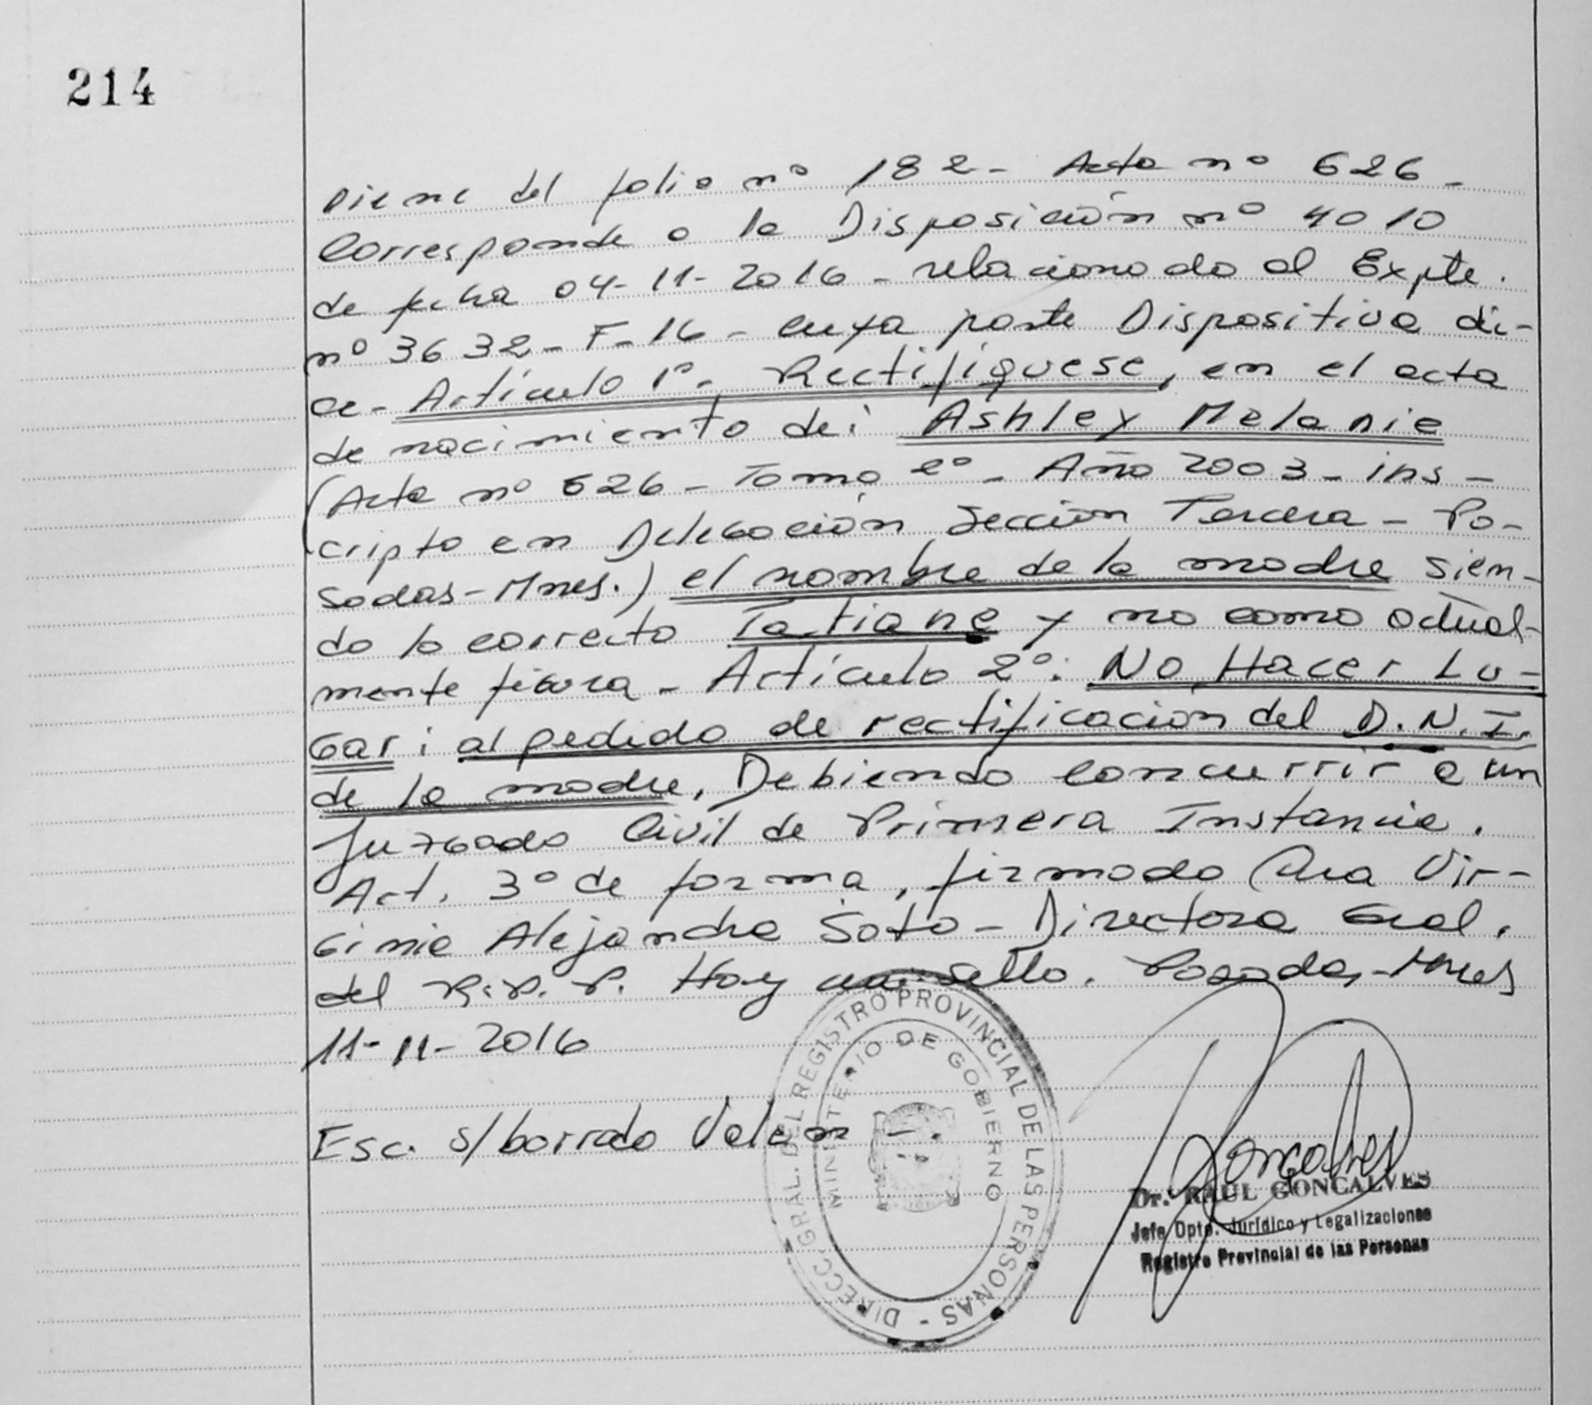 214
Viene del folio nº 182 - Acta nº 626 -
Corresponde a la Disposición nº 4010
de fecha 04-11-2016 - relacionado al Expte.
nº 3632 - F - 16 - cuya parte Dispositiva di-
ce - Artículo 1º. Rectifíquese, en el acta
de nacimiento de: Ashley Melanie
(Acta nº 626 - Tomo 2º - Año 2003 - ins -
cripto en Delegación Sección Tercera - Po-
sadas - Mnes.) el nombre de la madre sien-
do lo correcto Tatiane y no como actual-
mente figura - Artículo 2º: No Hacer Lu-
gar: al pedido de rectificación del D.N.I.
de la madre, Debiendo concurrir a un
Juzgado Civil de Primera Instancia.
Art. 3º de forma, firmado Dra Vir-
ginia Alejandra Soto - Directora Gral.
del R.P.P. Hay un sello. Posadas - Mnes
11-11-2016
Esc. s/borrado Valen -.
DIRECC. GRAL. DEL REGISTRO PROVINCIAL DE LAS PERSONAS -
MINISTERIO DE GOBIERNO
Goncalves
Dr. RAUL GONCALVES
Jefe Dpto. Jurídico y Legalizaciones
Registro Provincial de las Personas